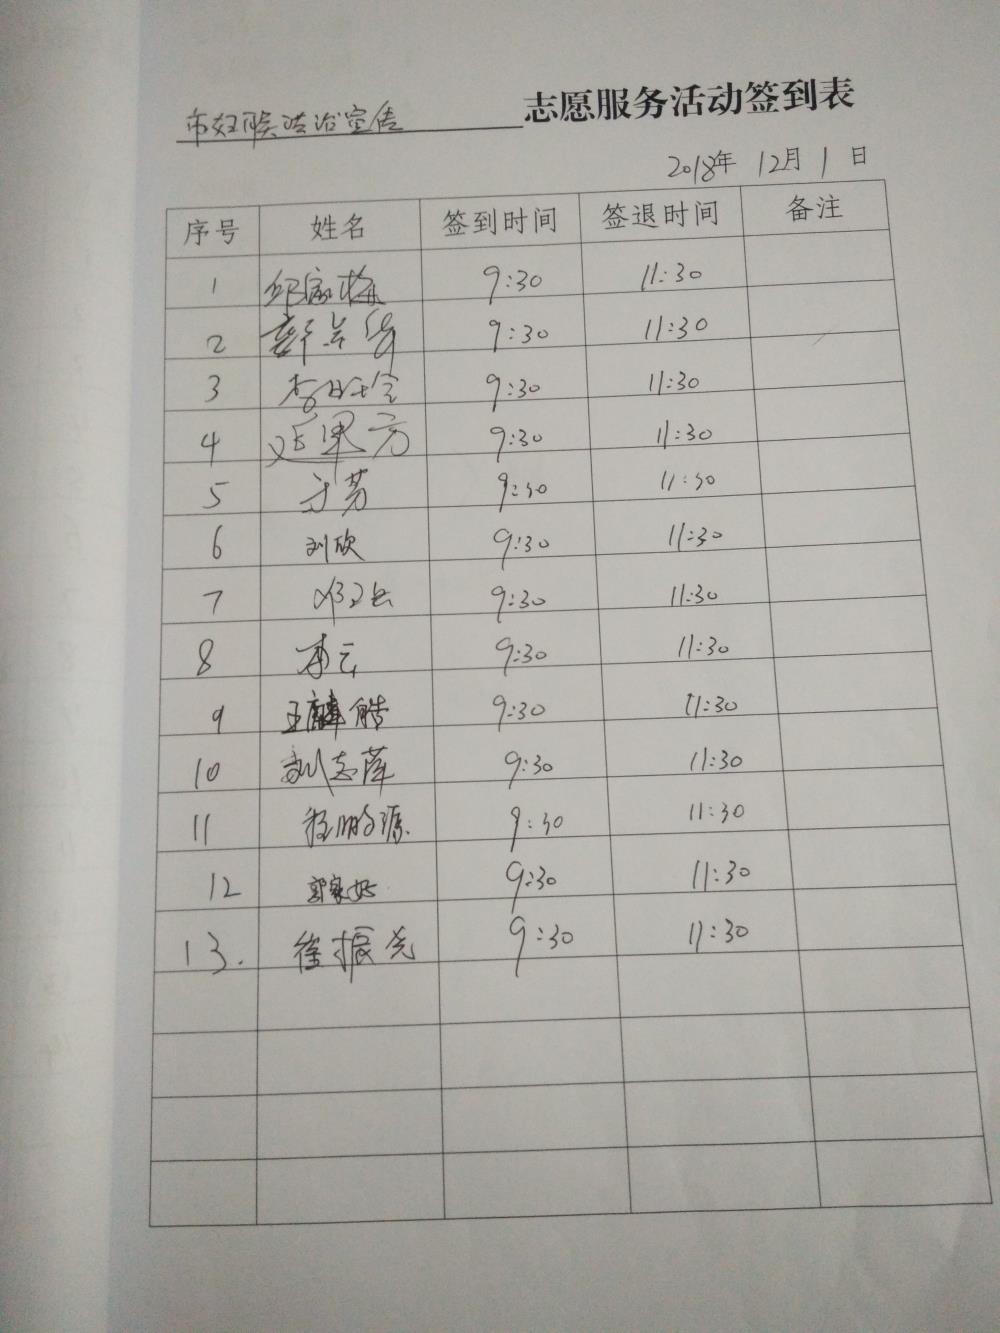 市妇联法治宣传 志愿服务活动签到表
2018年 12月 1 日
序号 姓名 签到时间 签退时间 备注
1 9:30 11:30
2 9:30 11:30
3 9:30 11:30
4 9:30 11:30
5 方芳 9:30 11:30
6 刘欣 9:30 11:30
7 9:30 11:30
8 李云 9:30 11:30
9 王麟皓 9:30 11:30
10 刘志萍 9:30 11:30
11 程鹏源 9:30 11:30
12 郭家好 9:30 11:30
13. 徐振尧 9:30 11:30